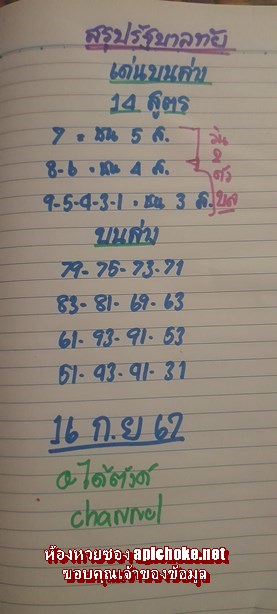 สรุปรัฐบาลไทย
เด่นบนล่าง
14 สูตร
7 = ชน 5 ส.
8-6 = ชน 4 ส.
9-5-4-3-1 = ชน 3 ส.
วิ่ง
2
ตัว
บน
บนล่าง
79-75-73-71
83-81-69-63
61-93-91-53
51-43-41-31
16 ก.ย 67
channel
ห้องหวยซอง apichoke.net
ขอบคุณเจ้าของข้อมูล